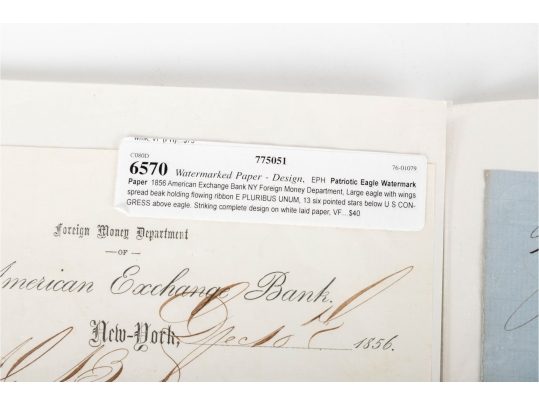 775051
C080D
76-01079
6570 Watermarked Paper - Design, EPH Patriotic Eagle Watermark
Paper 1856 American Exchange Bank NY Foreign Money Department, Large eagle with wings
spread beak holding flowing ribbon E PLURIBUS UNUM, 13 six pointed stars below U S CON-
GRESS above eagle. Striking complete design on white laid paper, VF...$40
Foreign Money Department
— OF —
American Exchange Bank.
New-York, 1856.